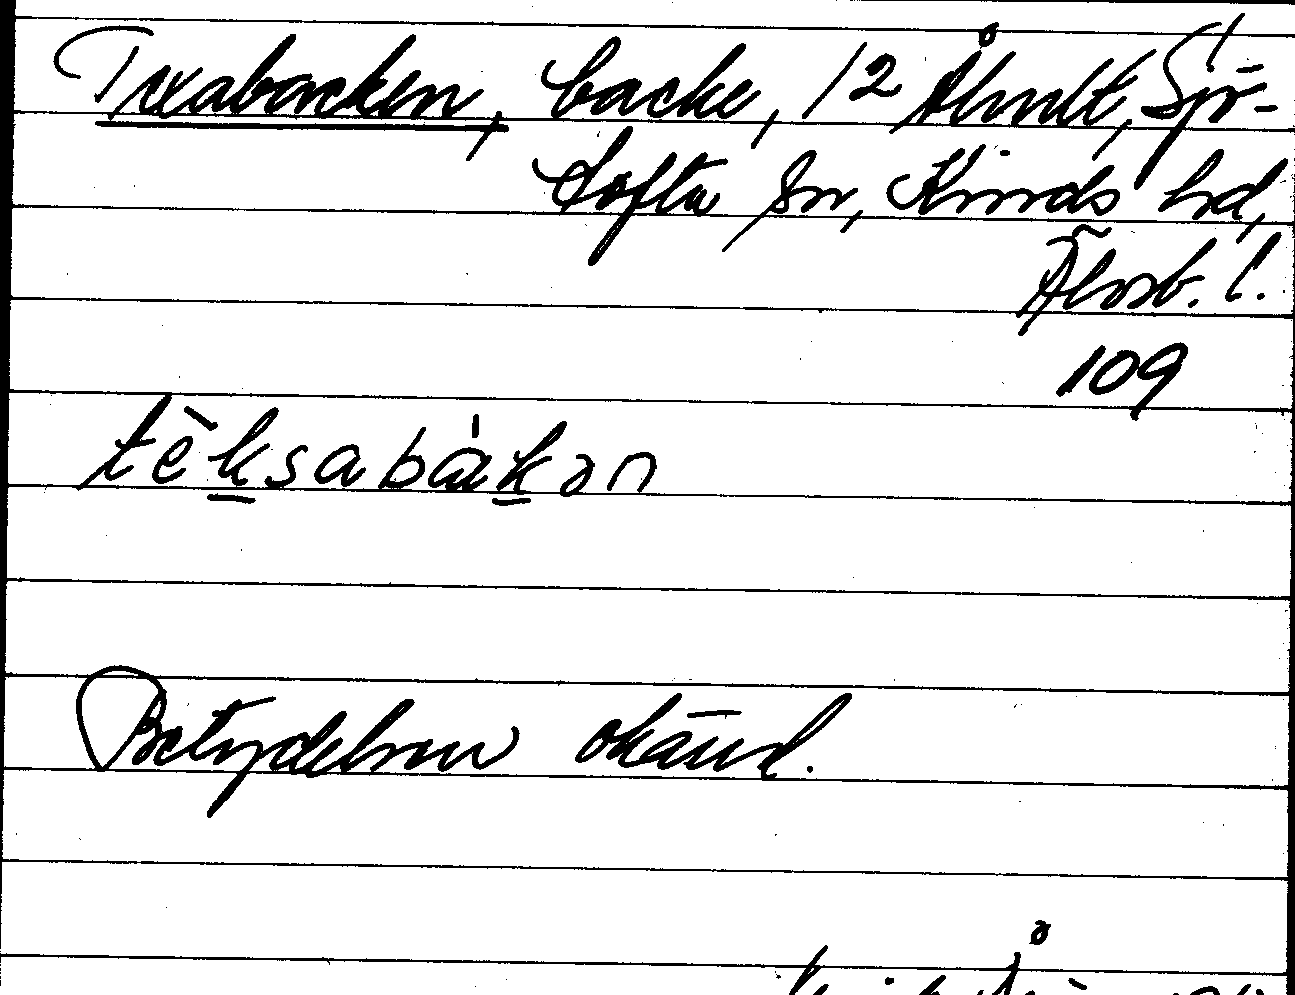 Texabacken, backe, 12 Älmhult, Sjö-
tofta sn, Kinds hd,
Älvsb. l.
109
tèksabákən
Betydelsen okänd.